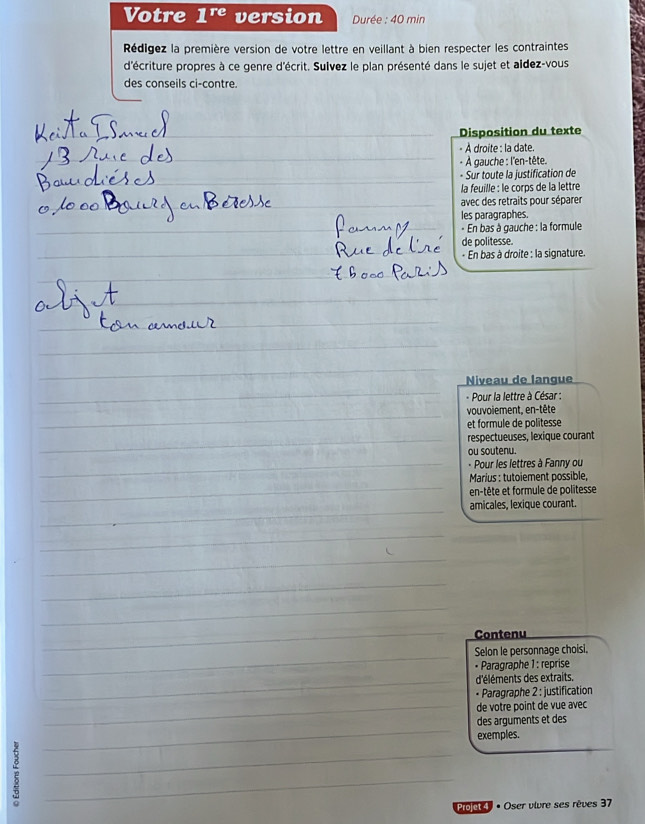 Votre 1re version
Durée : 40 min
Rédigez la première version de votre lettre en veillant à bien respecter les contraintes
d'écriture propres à ce genre d'écrit. Suivez le plan présenté dans le sujet et aidez-vous
des conseils ci-contre.
Keita ISmael
13 Rue des
Baudiéses
01000 Bourg en Bresse
Fanny
Rue de liré
75000 Paris
objet
ton amour
Disposition du texte
• À droite : la date.
• À gauche : l'en-tête.
• Sur toute la justification de
la feuille : le corps de la lettre
avec des retraits pour séparer
les paragraphes.
• En bas à gauche : la formule
de politesse.
• En bas à droite : la signature.
Niveau de langue
• Pour la lettre à César :
vouvoiement, en-tête
et formule de politesse
respectueuses, lexique courant
ou soutenu.
• Pour les lettres à Fanny ou
Marius : tutoiement possible,
en-tête et formule de politesse
amicales, lexique courant.
Contenu
Selon le personnage choisi.
• Paragraphe 1 : reprise
d'éléments des extraits.
• Paragraphe 2 : justification
de votre point de vue avec
des arguments et des
exemples.
© Éditions Foucher
Projet 4 • Oser vivre ses rêves 37